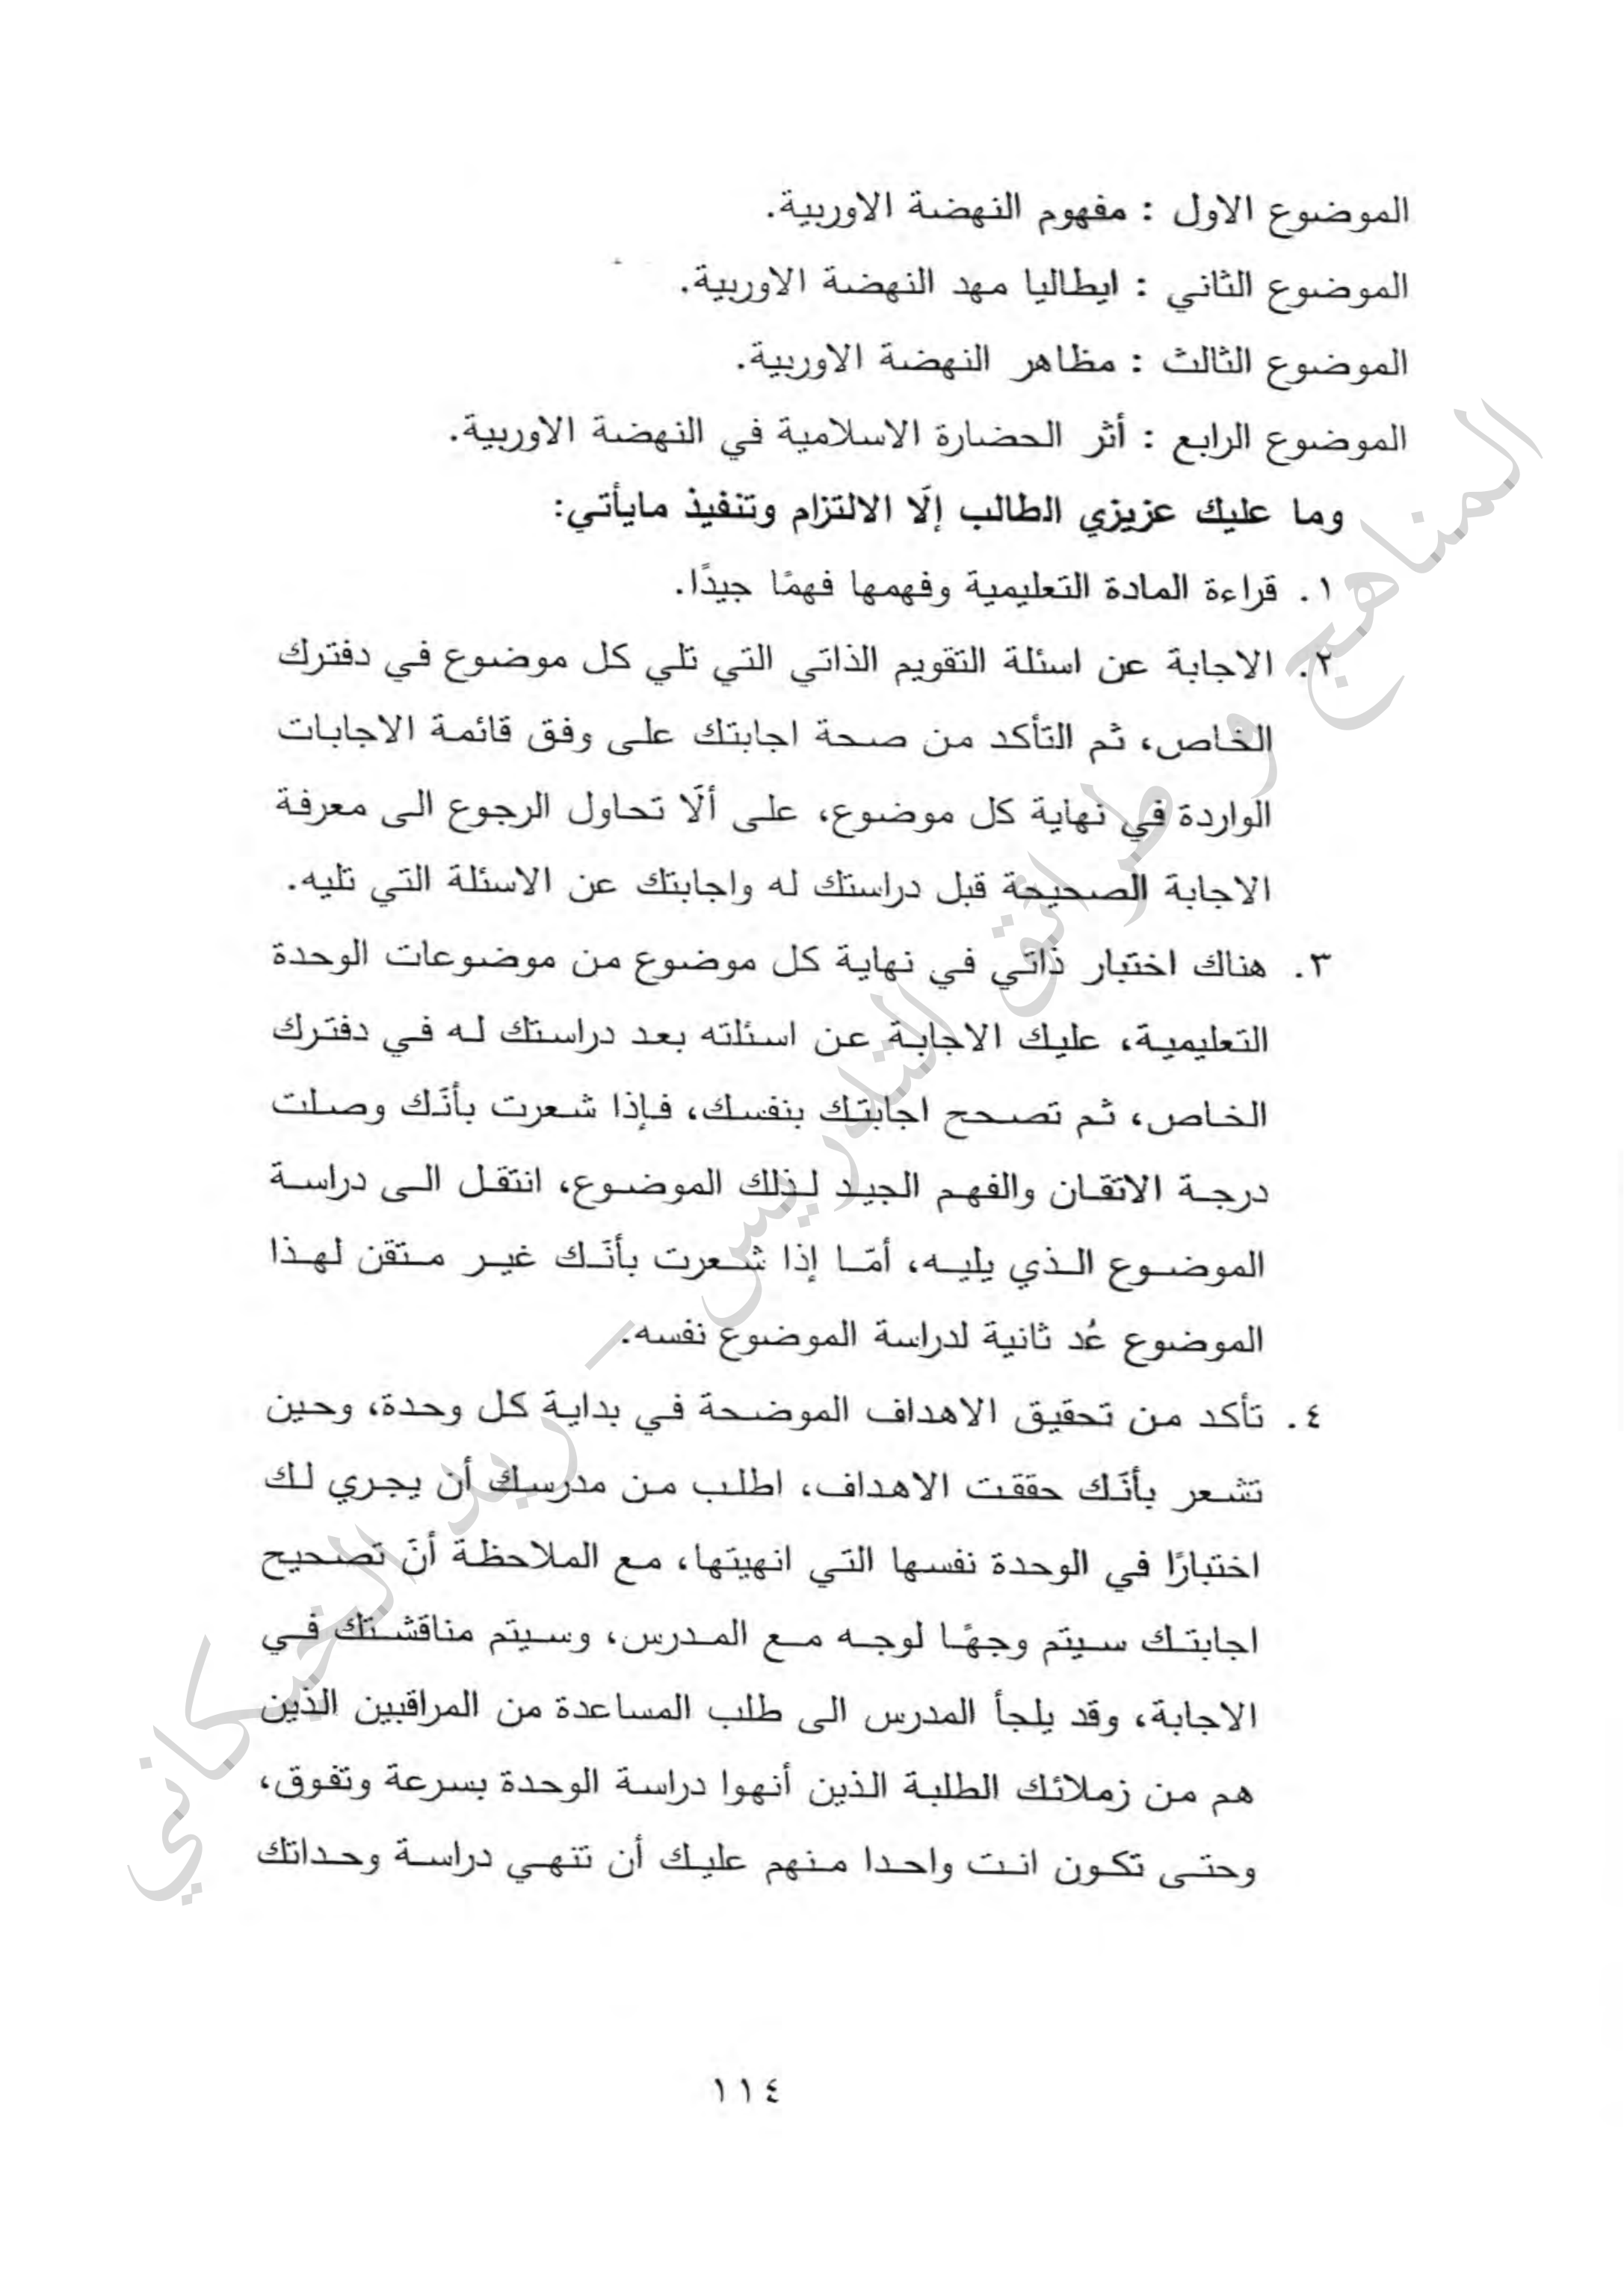 الموضوع الاول : مفهوم النهضة الاوربية.
الموضوع الثاني : ايطاليا مهد النهضة الاوربية.
الموضوع الثالث : مظاهر النهضة الاوربية.
الموضوع الرابع : أثر الحضارة الاسلامية في النهضة الاوربية.
وما عليك عزيزي الطالب إلّا الالتزام وتنفيذ مايأتي:
١. قراءة المادة التعليمية وفهمها فهمًا جيدًا.
٢. الاجابة عن اسئلة التقويم الذاتي التي تلي كل موضوع في دفترك
الخاص، ثم التأكد من صحة اجابتك على وفق قائمة الاجابات
الواردة في نهاية كل موضوع، على ألّا تحاول الرجوع الى معرفة
الاجابة الصحيحة قبل دراستك له واجابتك عن الاسئلة التي تليه.
٣. هناك اختبار ذاتي في نهاية كل موضوع من موضوعات الوحدة
التعليمية، عليك الاجابة عن اسئلته بعد دراستك له في دفترك
الخاص، ثم تصحح اجابتك بنفسك، فإذا شعرت بأنّك وصلت
درجة الاتقان والفهم الجيد لذلك الموضوع، انتقل الى دراسة
الموضوع الذي يليه، أمّا إذا شعرت بأنّك غير متقن لهذا
الموضوع عُد ثانية لدراسة الموضوع نفسه.
٤. تأكد من تحقيق الاهداف الموضحة في بداية كل وحدة، وحين
تشعر بأنّك حققت الاهداف، اطلب من مدرسك أن يجري لك
اختبارًا في الوحدة نفسها التي انهيتها، مع الملاحظة أنّ تصحيح
اجابتك سيتم وجهًا لوجه مع المدرس، وسيتم مناقشتك في
الاجابة، وقد يلجأ المدرس الى طلب المساعدة من المراقبين الذين
هم من زملائك الطلبة الذين أنهوا دراسة الوحدة بسرعة وتفوق،
وحتى تكون انت واحدا منهم عليك أن تنهي دراسة وحداتك
١١٤
المناهج وطرائق التدريس – ريد الخيكاني